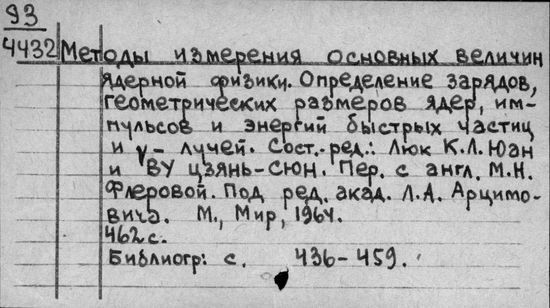 93
4432 Методы измерения основных величин
ядерной физики. Определение зарядов,
геометрических размеров ядер, им-
пульсов и энергий быстрых частиц
и γ- лучей. Сост.-ред.: Люк К.Л. Юан
и ВУ Цзянь-Сюн. Пер. с англ. М.Н.
Флеровой. Под ред. акад. Л.А. Арцимо-
вича. М., Мир, 1964.
462 с.
Библиогр: с. 436-459.